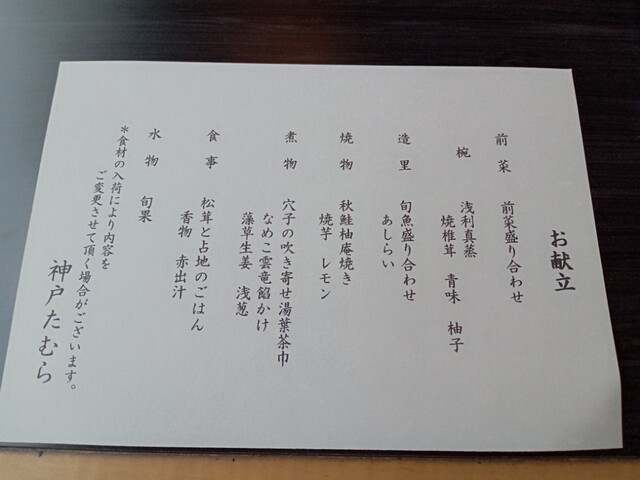 お献立
前菜　前菜盛り合わせ
椀　浅利真蒸
焼椎茸　青味　柚子
造里　旬魚盛り合わせ
あしらい
焼物　秋鮭柚庵焼き
焼芋　レモン
煮物　穴子の吹き寄せ湯葉茶巾
なめこ雲竜餡かけ
藻草生姜　浅葱
食事　松茸と占地のごはん
香物　赤出汁
水物　旬果
＊食材の入荷により内容を
ご変更させて頂く場合がございます。
神戸たむら